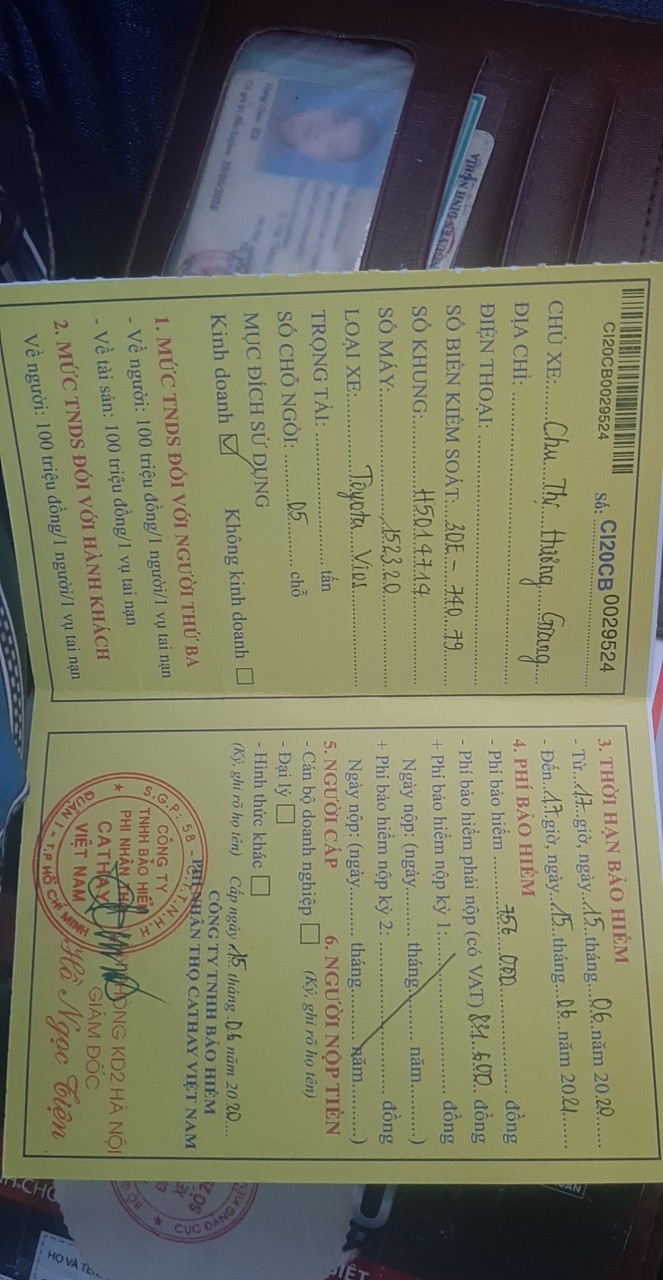 CI20CB0029524
Số: CI20CB 0029524
CHỦ XE: Chu Thị Hương Giang
ĐỊA CHỈ:
ĐIỆN THOẠI:
SỐ BIỂN KIỂM SOÁT: 30E - 740 79
SỐ KHUNG: H5014714
SỐ MÁY: 152320
LOẠI XE: Toyota Vios
TRỌNG TẢI: tấn
SỐ CHỖ NGỒI: 05 chỗ
MỤC ĐÍCH SỬ DỤNG
Kinh doanh Không kinh doanh
1. MỨC TNDS ĐỐI VỚI NGƯỜI THỨ BA
- Về người: 100 triệu đồng/1 người/1 vụ tai nạn
- Về tài sản: 100 triệu đồng/1 vụ tai nạn
2. MỨC TNDS ĐỐI VỚI HÀNH KHÁCH
Về người: 100 triệu đồng/1 người/1 vụ tai nạn
3. THỜI HẠN BẢO HIỂM
- Từ 17 giờ, ngày 15 tháng 06 năm 2020
- Đến 17 giờ, ngày 15 tháng 06 năm 2021
4. PHÍ BẢO HIỂM
- Phí bảo hiểm 756 000 đồng
- Phí bảo hiểm phải nộp (có VAT) 831.600 đồng
+ Phí bảo hiểm nộp kỳ 1: đồng
Ngày nộp: (ngày tháng năm )
+ Phí bảo hiểm nộp kỳ 2: đồng
Ngày nộp: (ngày tháng năm )
5. NGƯỜI CẤP 6. NGƯỜI NỘP TIỀN
- Cán bộ doanh nghiệp (Ký, ghi rõ họ tên)
- Đại lý
- Hình thức khác
(Ký, ghi rõ họ tên) Cấp ngày 15 tháng 06 năm 2020
CÔNG TY TNHH BẢO HIỂM
PHI NHÂN THỌ CATHAY VIỆT NAM
S.G.P: 58 - C.T.T.N.H.H
CÔNG TY
TNHH BẢO HIỂM
PHI NHÂN THỌ
CATHAY
VIỆT NAM
QUẬN 1 - T.P HỒ CHÍ MINH
PHÒNG KD2 HÀ NỘI
GIÁM ĐỐC
Hồ Ngọc Tiện